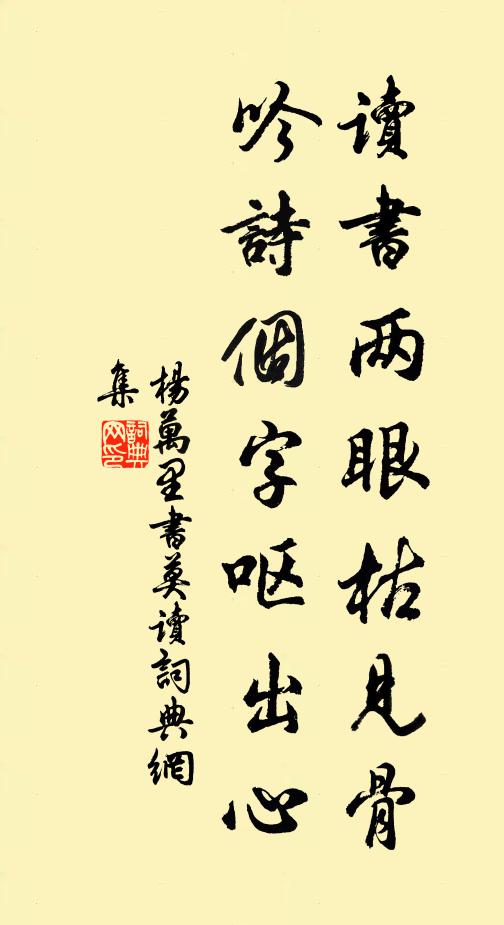 讀書两眼枯見骨
吟詩個字呕出心
楊萬里書莫讀詞典網
集
詞典
网印